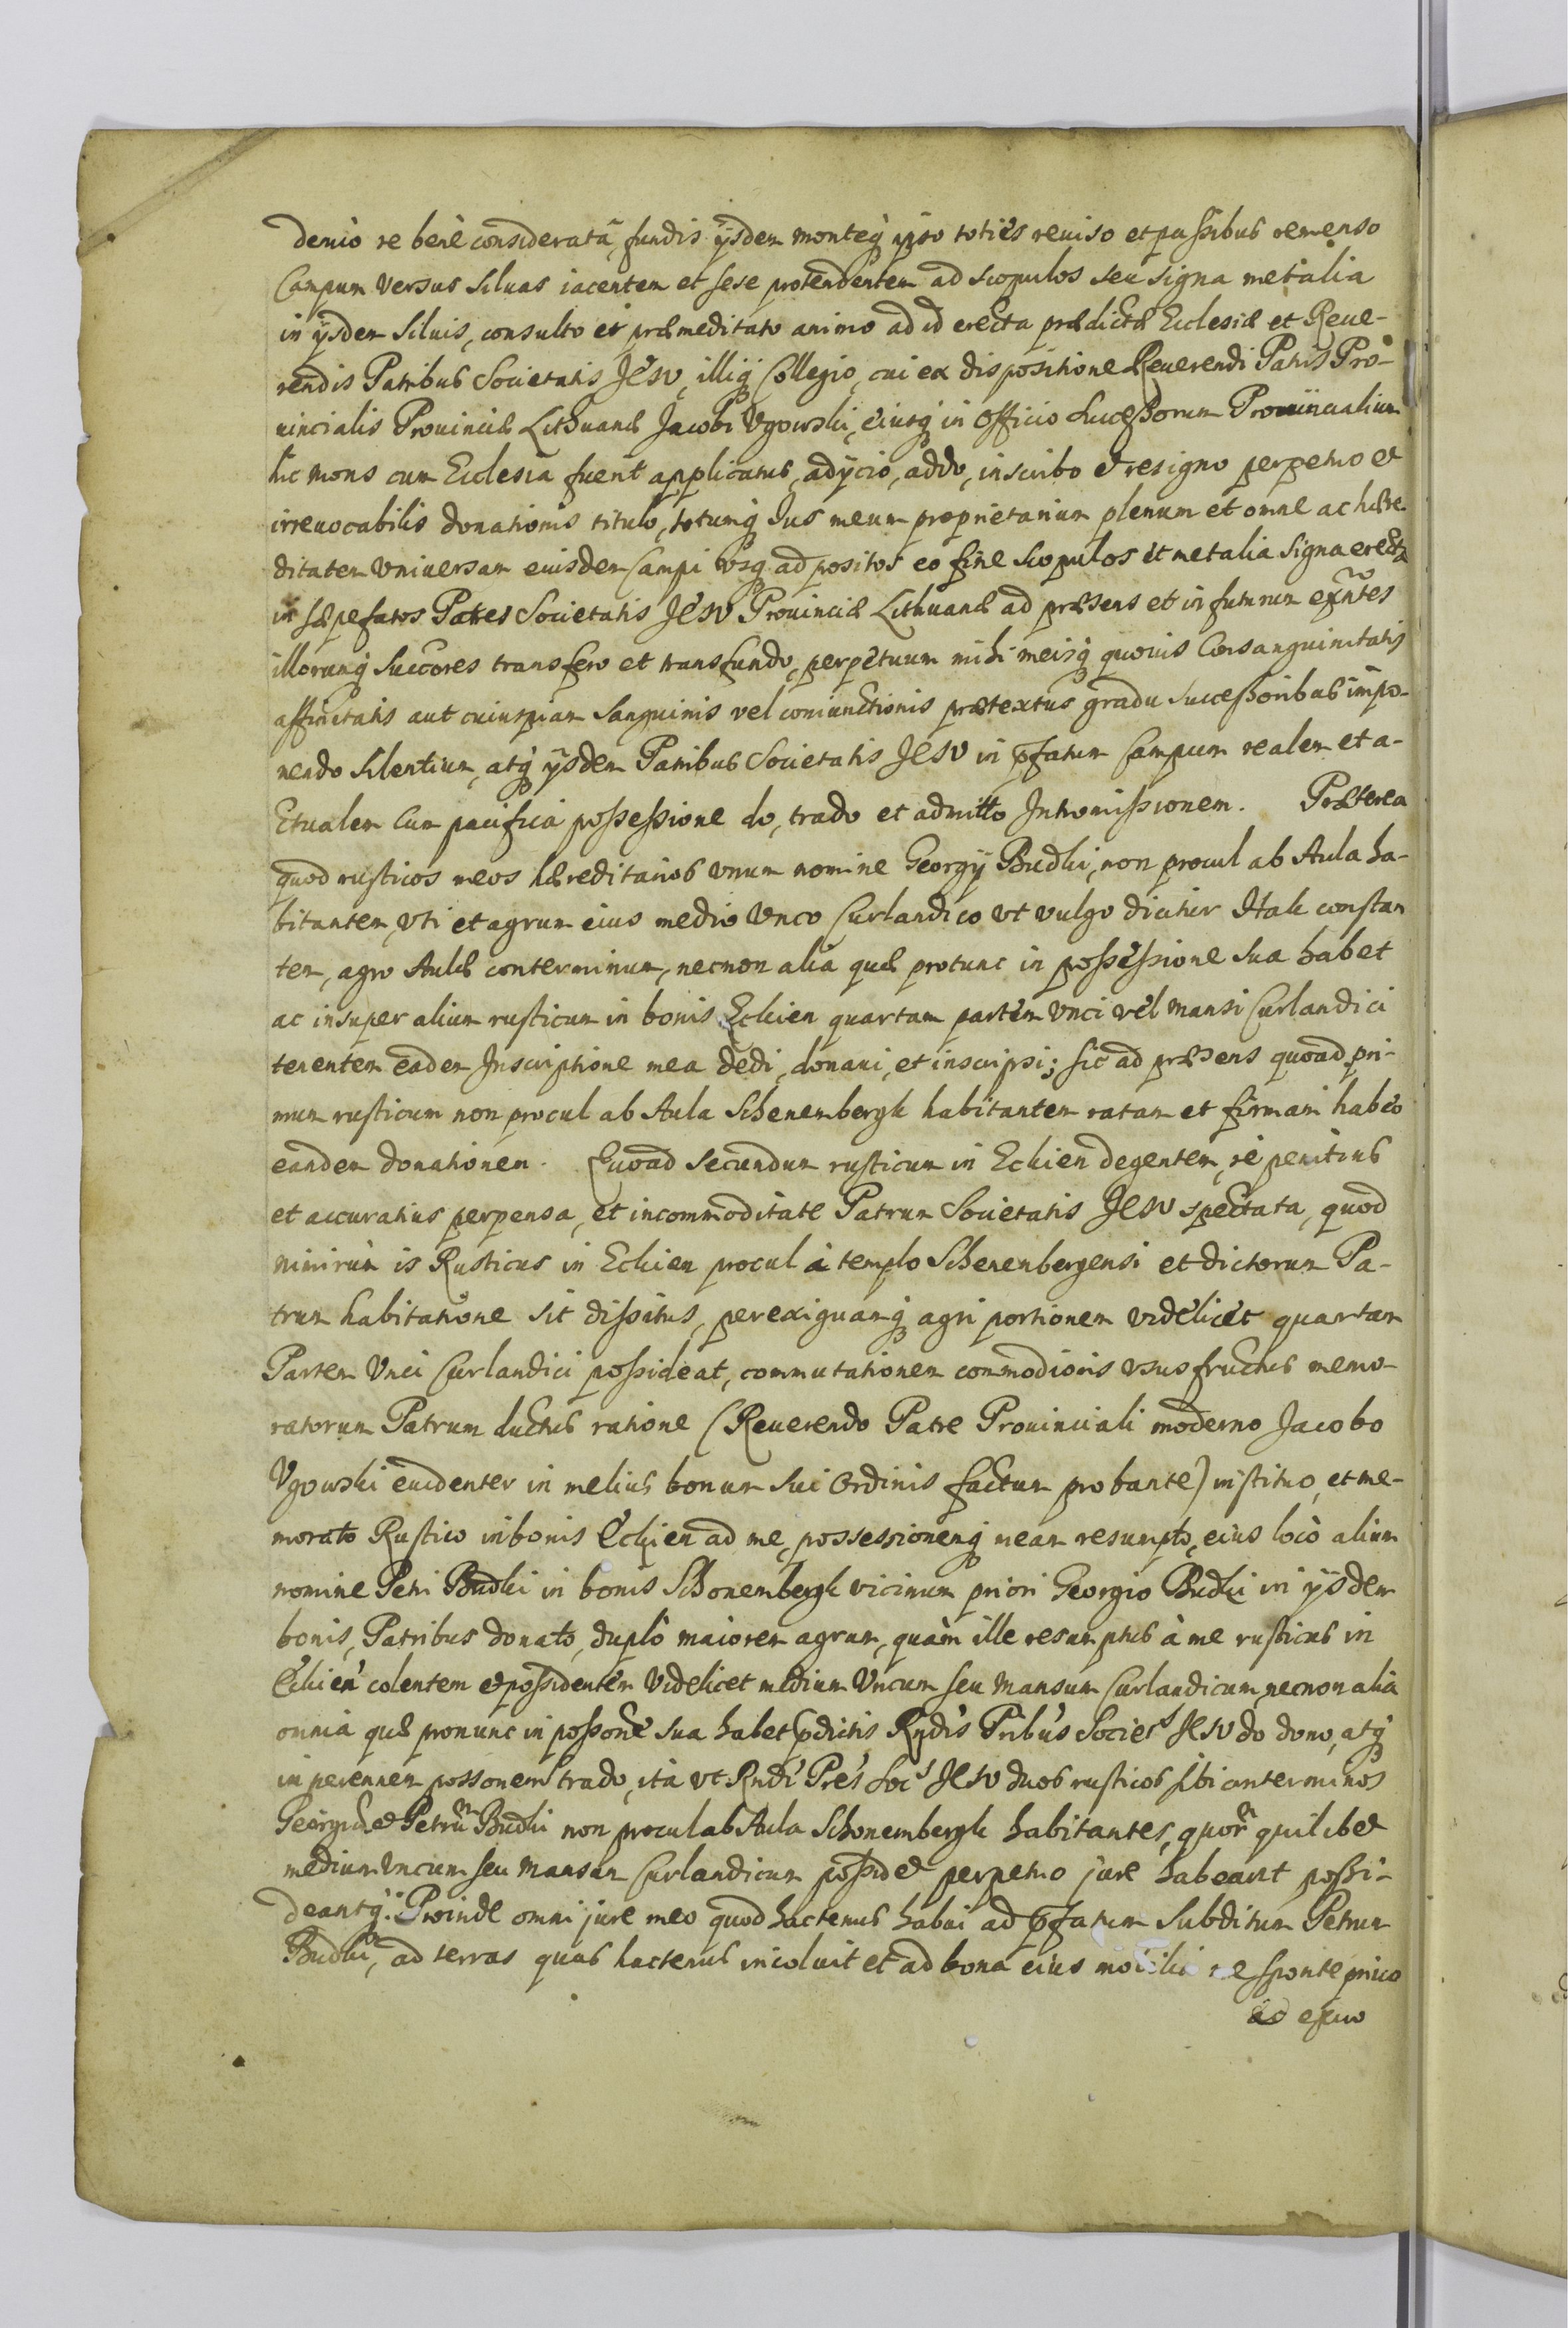 denuò re benè consideratâ, fundis ijsdem monteq́ ipso totiès reuiso et passibus remenso
Campum versus siluas iacentem et sese protendentem ad scopulos seu signa metalia
in ijsdem siluis, consulto et præmeditato animo ad id erecta prædictæ Ecclesiæ et Reue-
rendis Patribus Societatis JESV, illiq́ Collegio, cui ex dispositione Reuerendi Patris Pro-
uincialis Prouinciæ Lithuanæ Jacobi Vgowski, eiusq́ in Officio Successorum Prouincialium
hic mons cum Ecclesia fuerit applicatus, adijcio, addo, inscribo et resigno perpetuo et
irreuocabilis donationis titulo, totumq́ Ius meum proprietarium plenum et omne ac hære-
ditatem vniuersam euisdem Campi vsq́ ad positos eo fine scopulos et metalia signa erecta
in sæpefatos Patres Societatis JESV Prouinciæ Lithuanæ ad præsens et in futurum exñtes
illorumq́ succores transfero et transfundo, perpetuum mihi meisq́ quouis Consanguinitatis
affinitatis aut cuiuspiam sanguinis vel coniunctionis prætextus gradu successoribus impo-
nendo silentium, atq́ ijsdem Patribus Societatis JESV in p̃fatum Campum realem et a-
ctualem cum pacifica possessione do, trado et admitto Intromissionem. Præterea
quod rusticos meos hæreditarios vnum nomine Georgij Budki, non procul ab Aula ha-
bitantem, vti et agrum eius medio Vnco Curlandico vt vulgo dicitur Hak constan
tem, agro Aulæ conterminum, necnon alia quæ protunc in possessione sua habet
ac insuper alium rusticum in bonis Eckien quartam partem vnci vel mansi Curlandici
tenentem eadem Inscriptione mea dedi, donaui, et inscripsi; sic ad præsens quoad pri-
mum rusticum non procul ab Aula Schenembergk habitantem ratam et firmam habeo
eandem donationem. Quoad secundum rusticum in Eckien degentem, re penitus
et accuratius perpensa, et incommoditate Patrum Societatis JESV spectata, quod
nimirùm is Rusticus in Eckien procul à templo Schenenbergensi et dictorum Pa-
trum habitatione sit dissitus, perexiguamq́ agri portionem videlicet quartam
Partem Vnci Curlandici possideat, commutationem commodioris vsusfructus memo-
ratorum Patrum ductus ratione (Reuerendo Patre Prouinciali moderno Jacobo
Vgowski euidenter in melius bonum sui Ordinis factum probante) instituo, et me-
morato Rustico in bonis Eckien ad me, possessionemq́ meam resumpto, eius locò alium
nomine Petri Budki in bonis Schonembergk vicinum priori Georgio Budki in ijsdem
bonis, Patribus donato, duplò maiorem agrum, quàm ille resumptus à me rusticus in
Eckien colentem et possidentem videlicet medium Vncum seu Mansum Curlandicum, necnon alia
omnia quæ pronunc in possone sua habet p̃dictis Rndis Pribus Societs JESV do dono, atq́
in perennem possonem trado, ità vt Rndi Pres Socs JESV duos rusticos sibi conterminos
Georgiũ et Petrũ Budki non procul ab Aula Schonembergk habitantes, quor̃ quilibet
medium Vncum seu Mansum Curlandicum possidet perpetuo jure habeant possi-
deantq́. Proinde omni jure meo quod hactenus habui ad p̃fatum subditum Petrum
Budki, ad terras quas hactenus incoluit et ad bona eius mobilia sponte